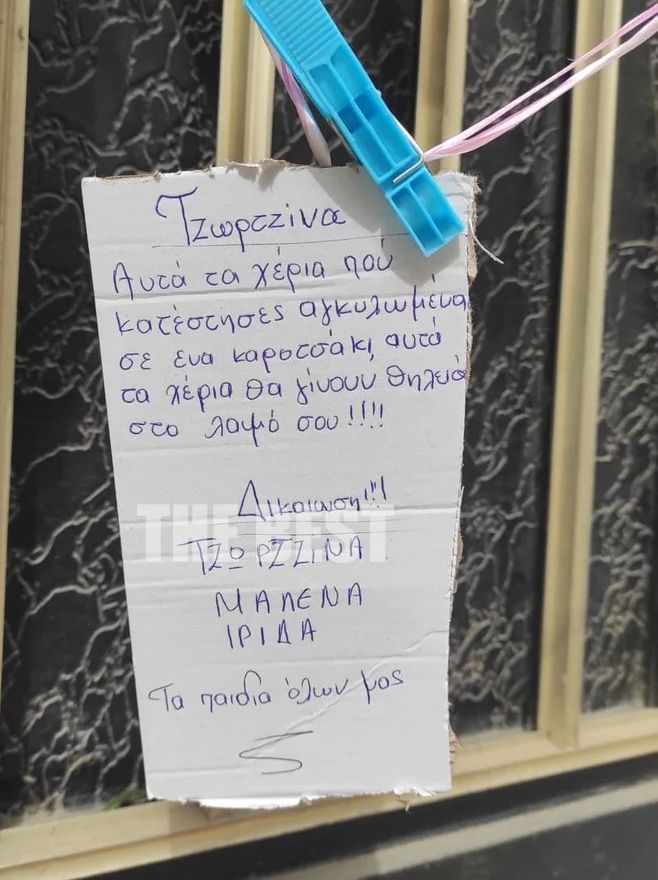 Τζωρτζίνα
Αυτά τα χέρια πού
κατέστησες αγκυλωμένα
σε ενα καροτσάκι, αυτά
τα χέρια θα γίνουν θηλειά
στο λαιμό σου!!!!
Δικαιωση!!!
THE BEST
ΤΖΩΡΤΖΙΝΑ
ΜΑΛΕΝΑ
ΙΡΙΔΑ
Τα παιδια όλων μας